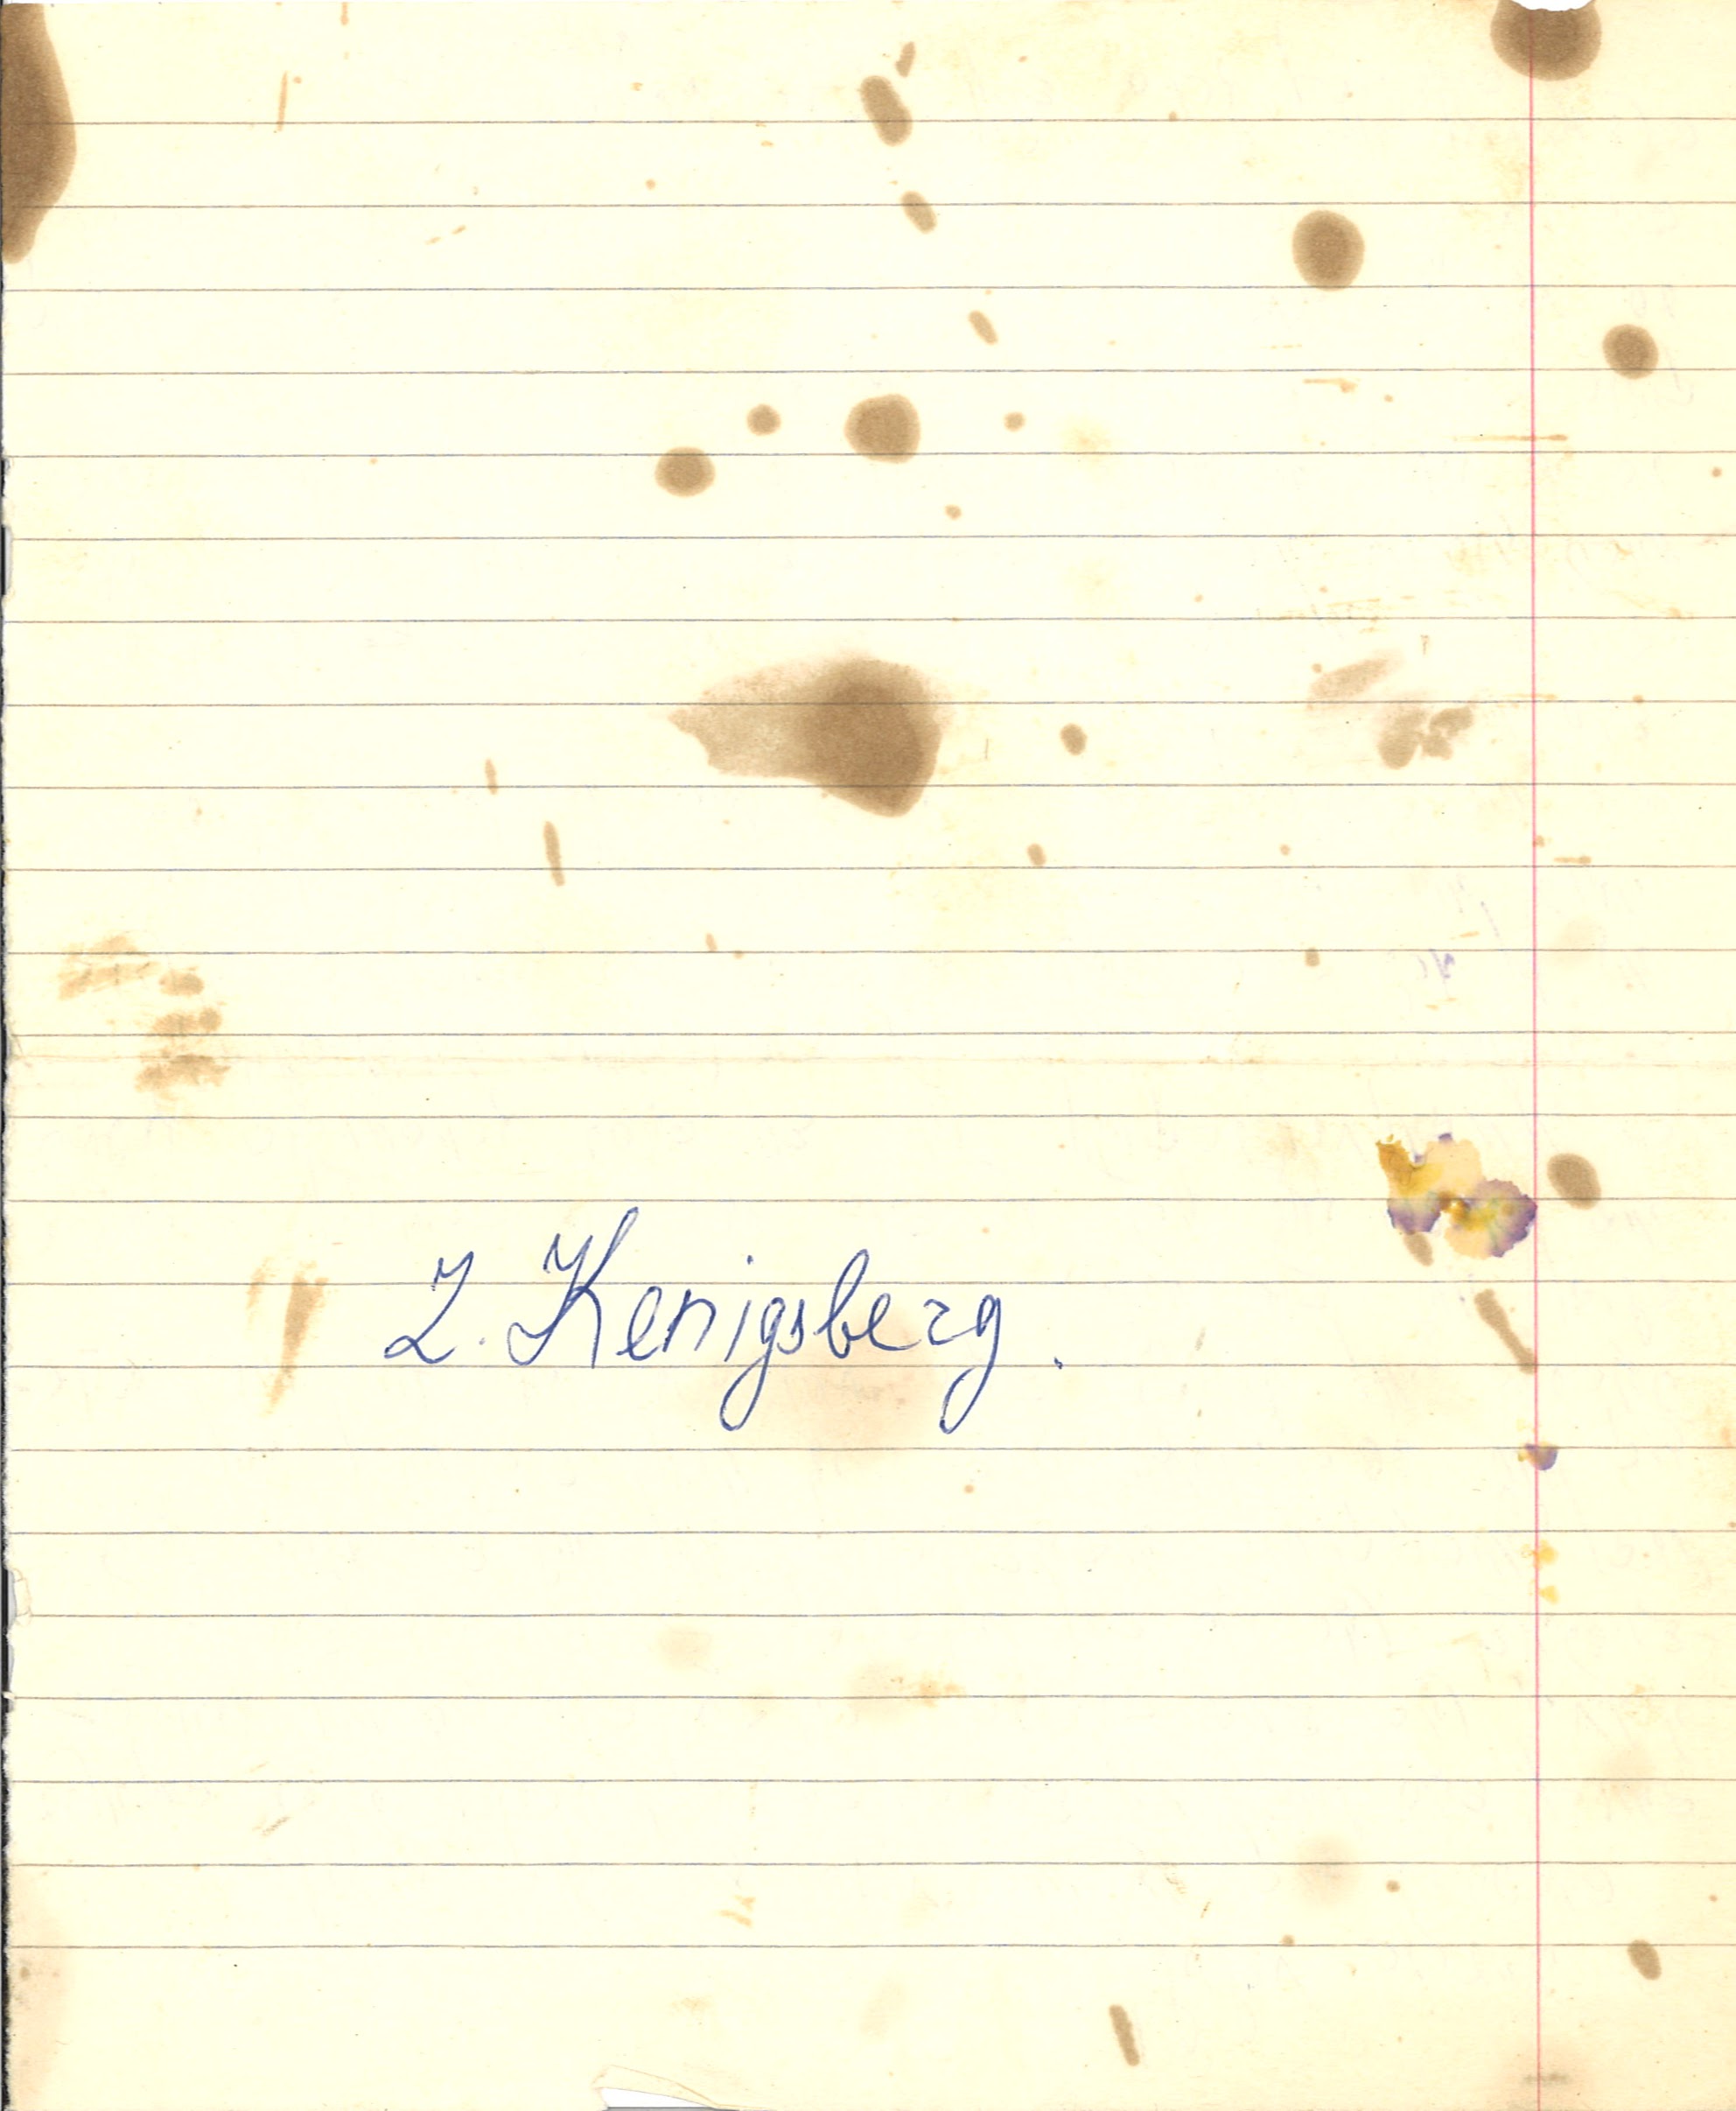 Z. Kenigsberg.